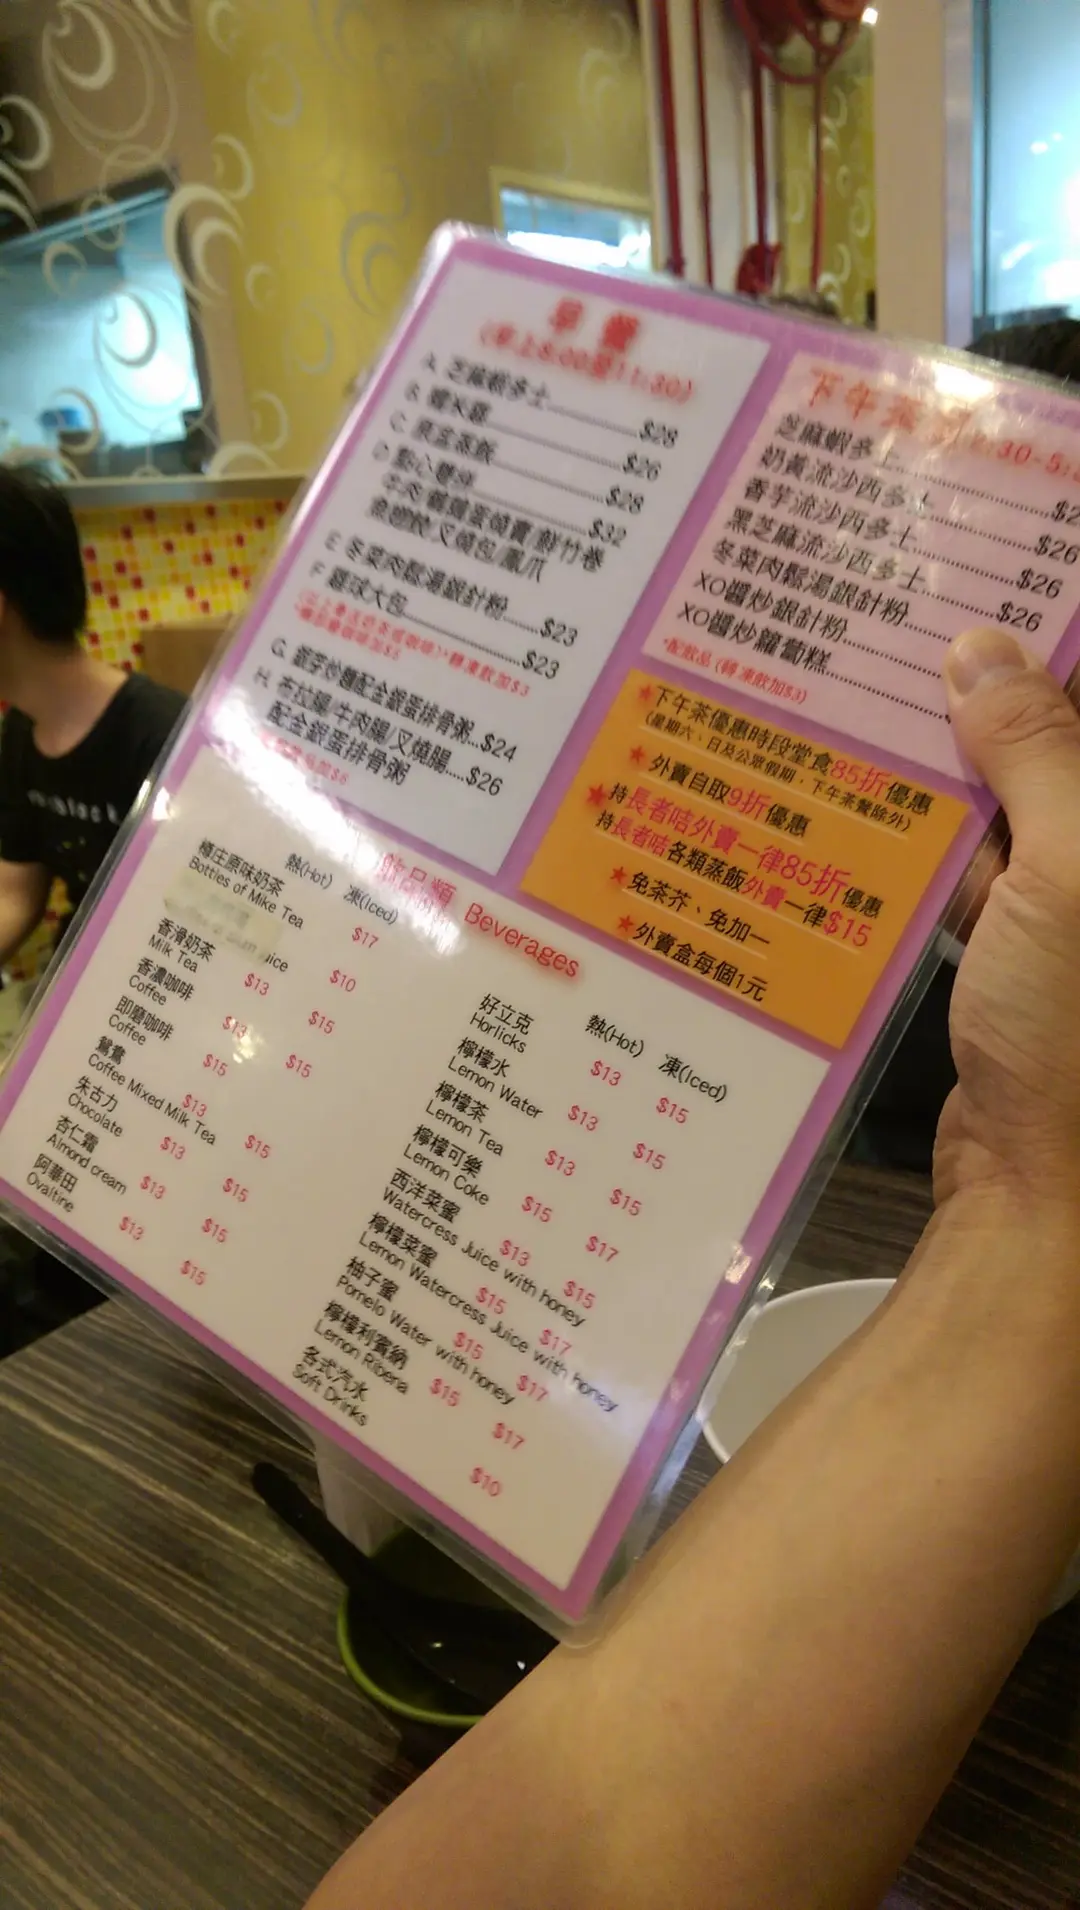 早餐
(早上6:00至11:30)
A. 芝麻蝦多士 $28
B. $26
C. 蒸飯 $28
D. 點心雙拼 $32
牛肉/鵪鶉蛋燒賣/鮮竹卷
叉燒包/鳳爪
E. 冬菜肉鬆湯銀針粉 $23
F. 雞球大包 $23
G. $24
H. 布拉腸/牛肉腸/叉燒腸 $26
配金銀蛋排骨粥
下午茶
芝麻蝦多士
奶黃流沙西多士 $26
香芋流沙西多士 $26
黑芝麻流沙西多士 $26
冬菜肉鬆湯銀針粉
XO醬炒銀針粉
XO醬炒蘿蔔糕
*配飲品 (轉凍飲加$3)
★下午茶優惠時段堂食85折優惠
(星期六、日及公眾假期，下午茶餐除外)
★外賣自取9折優惠
★持長者咭外賣一律85折優惠
持長者咭各類蒸飯外賣一律$15
★免茶芥、免加一
★外賣盒每個1元
飲品類 Beverages
熱(Hot) 凍(Iced)
樽庄原味奶茶 $17
Bottles of Mike Tea
Juice $10
香滑奶茶 $13 $15
Milk Tea
香濃咖啡 $13 $15
Coffee
即磨咖啡 $15
Coffee
鴛鴦 $13 $15
Coffee Mixed Milk Tea
朱古力 $13 $15
Chocolate
杏仁霜 $13 $15
Almond cream
阿華田 $13 $15
Ovaltine
熱(Hot) 凍(Iced)
好立克 $13 $15
Horlicks
檸檬水 $13 $15
Lemon Water
檸檬茶 $13 $15
Lemon Tea
檸檬可樂 $15 $17
Lemon Coke
西洋菜蜜 $13 $15
Watercress Juice with honey
檸檬菜蜜 $15 $17
Lemon Watercress Juice with honey
柚子蜜 $15 $17
Pomelo Water with honey
檸檬利賓納 $15 $17
Lemon Ribena
各式汽水 $10
Soft Drinks